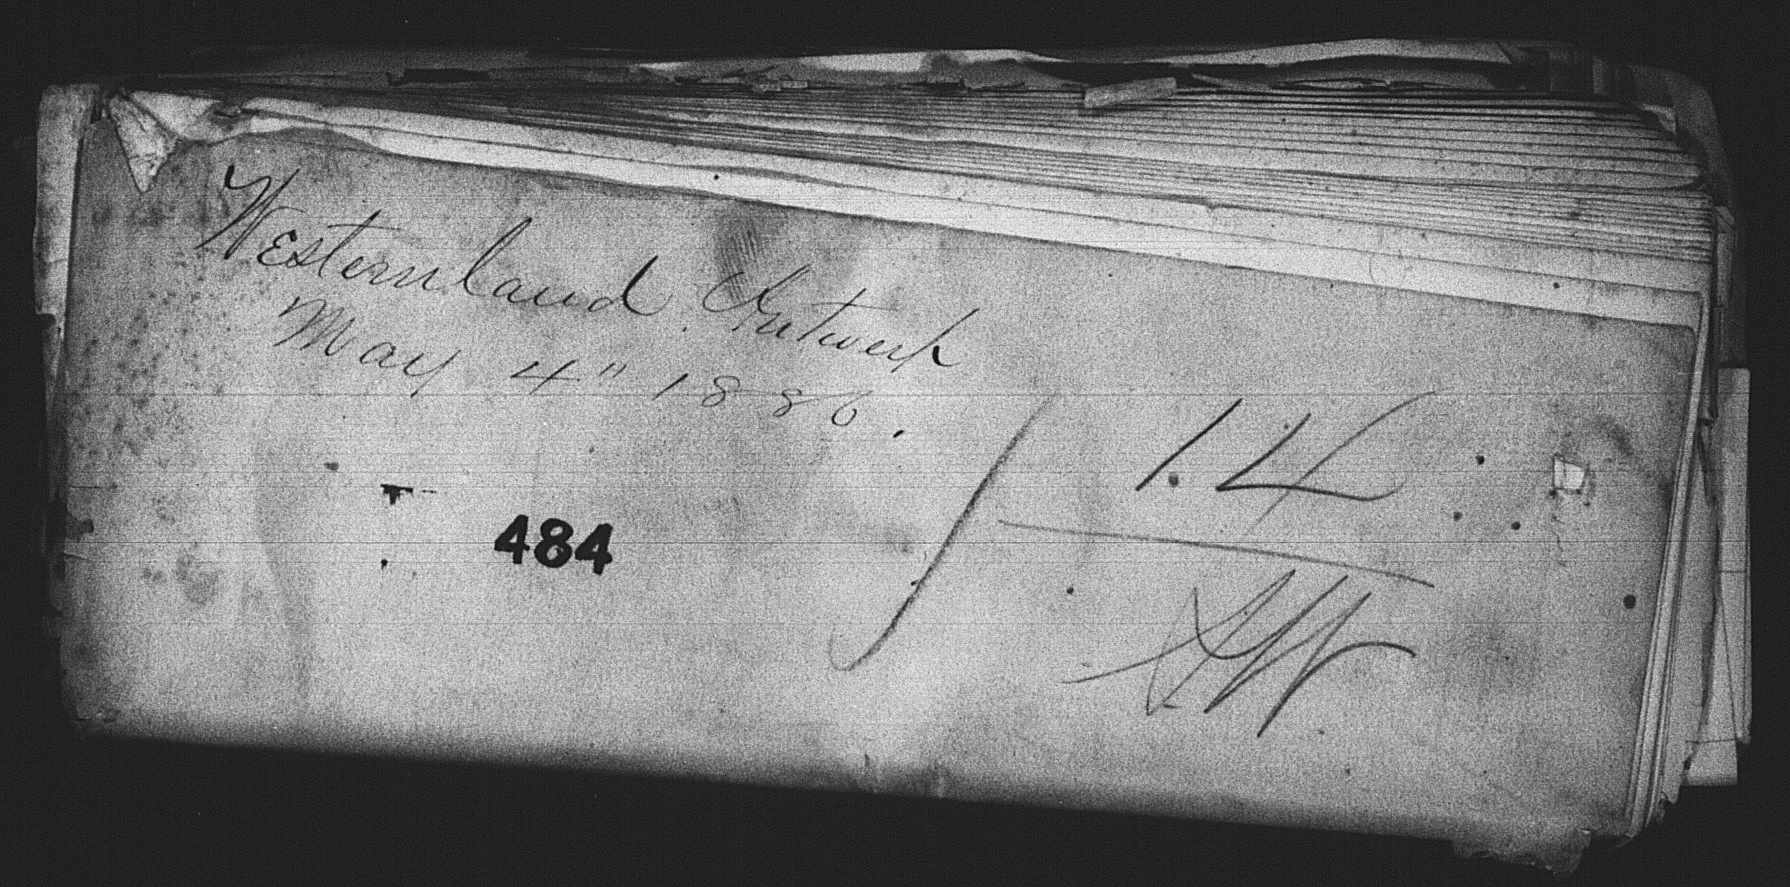 Westernland Antwerp
May 4" 1886.
484
14